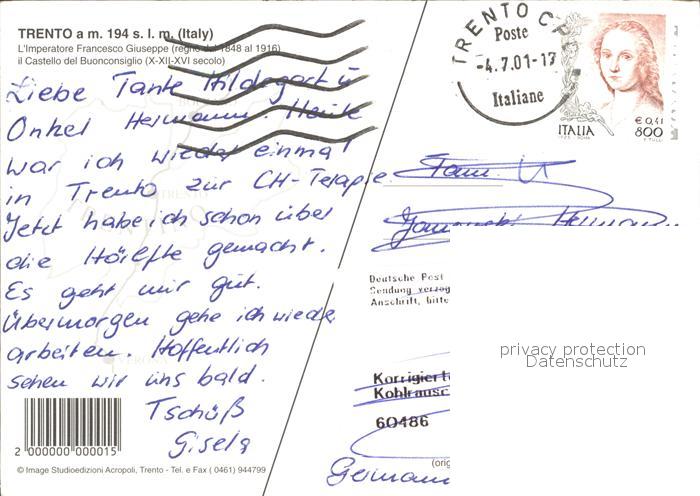 TRENTO a m. 194 s. l. m. (Italy)
L'Imperatore Francesco Giuseppe (regno dal 1848 al 1916)
il Castello del Buonconsiglio (X-XII-XVI secolo)
Liebe Tante Hildegart u
Onkel Hermann. Heute
war ich wieder einmal
in Trento zur CH-Terapie.
Jetzt habe ich schon über
die Hälfte gemacht.
Es geht mir gut.
Übermorgen gehe ich wieder
arbeiten. Hoffentlich
sehen wir uns bald.
Tschüß
Gisela
2 000000 000015
© Image Studioedizioni Acropoli, Trento - Tel. e Fax ( 0461) 944799
TRENTO C.P.
Poste
-4.7.01-17
Italiane
ITALIA
€ 0,41
800
Fam.
Hermann
Deutsche Post
Sendung verzog
Anschrift, bitte
Korrigiert
Kohlrausc
60486
(orig
German
privacy protection
Datenschutz